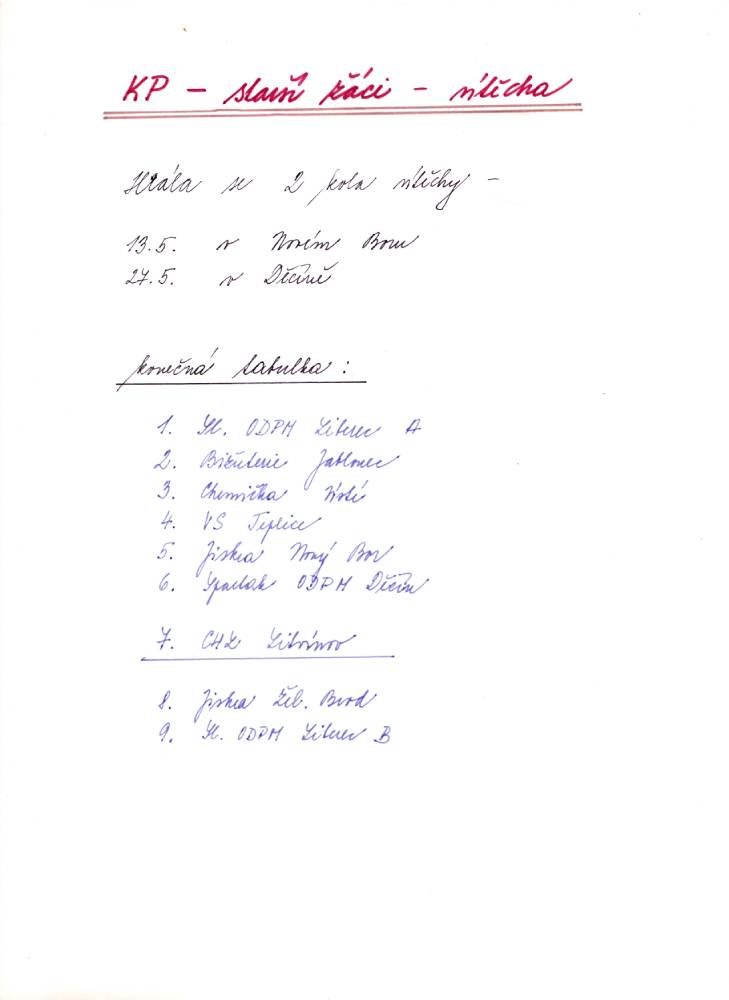 KP - starší žáci - útěcha
Hrála se 2 kola útěchy -
13.5. v Novém Boru
27.5. v Děčíně
konečná tabulka :
1. Sl. ODPM Liberec A
2. Bižuterie Jablonec
3. Chemička Ústí
4. VS Teplice
5. Jiskra Nový Bor
6. Spartak ODPM Děčín
7. CHZ Litvínov
8. Jiskra Žel. Brod
9. Sl. ODPM Liberec B